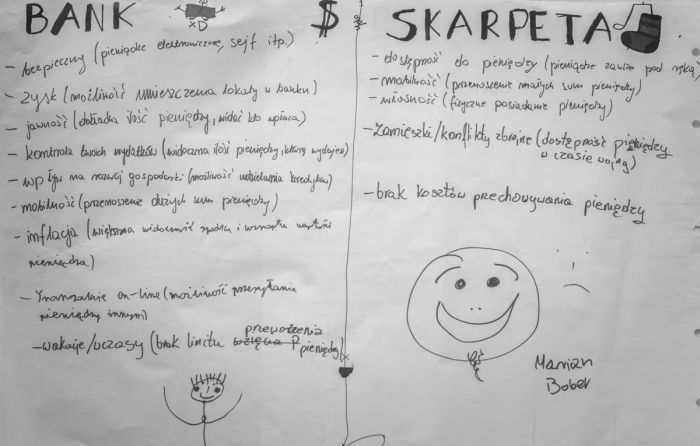 BANK
XD
$
- bezpieczny (pieniądze elektroniczne, sejf itp.)
- zysk (możliwość umieszczenia lokaty w banku)
- jawność (dokładna ilość pieniędzy, widać kto wpłaca)
- kontrola twoich wydatków (widoczna ilość pieniędzy, którą wydajesz)
- wpływ na rozwój gospodarki (możliwość udzielania kredytów)
- mobilność (przenoszenie dużych sum pieniędzy)
- inflacja (większa widoczność spadku i wzrostu wartości
pieniądza)
- Transakcje on-line (możliwość przesyłania
pieniędzy innym)
przewożenia
- wakacje/wczasy (brak limitu pieniędzy)
SKARPETA
- dostępność do pieniędzy (pieniądze zawsze pod ręką)
- mobilność (przenoszenie małych sum pieniędzy)
- własność (fizyczne posiadanie pieniędzy)
- Zamieszki/konflikty zbrojne (dostępność pieniędzy
w czasie wojny)
- brak kosztów przechowywania pieniędzy
Marian
Bober